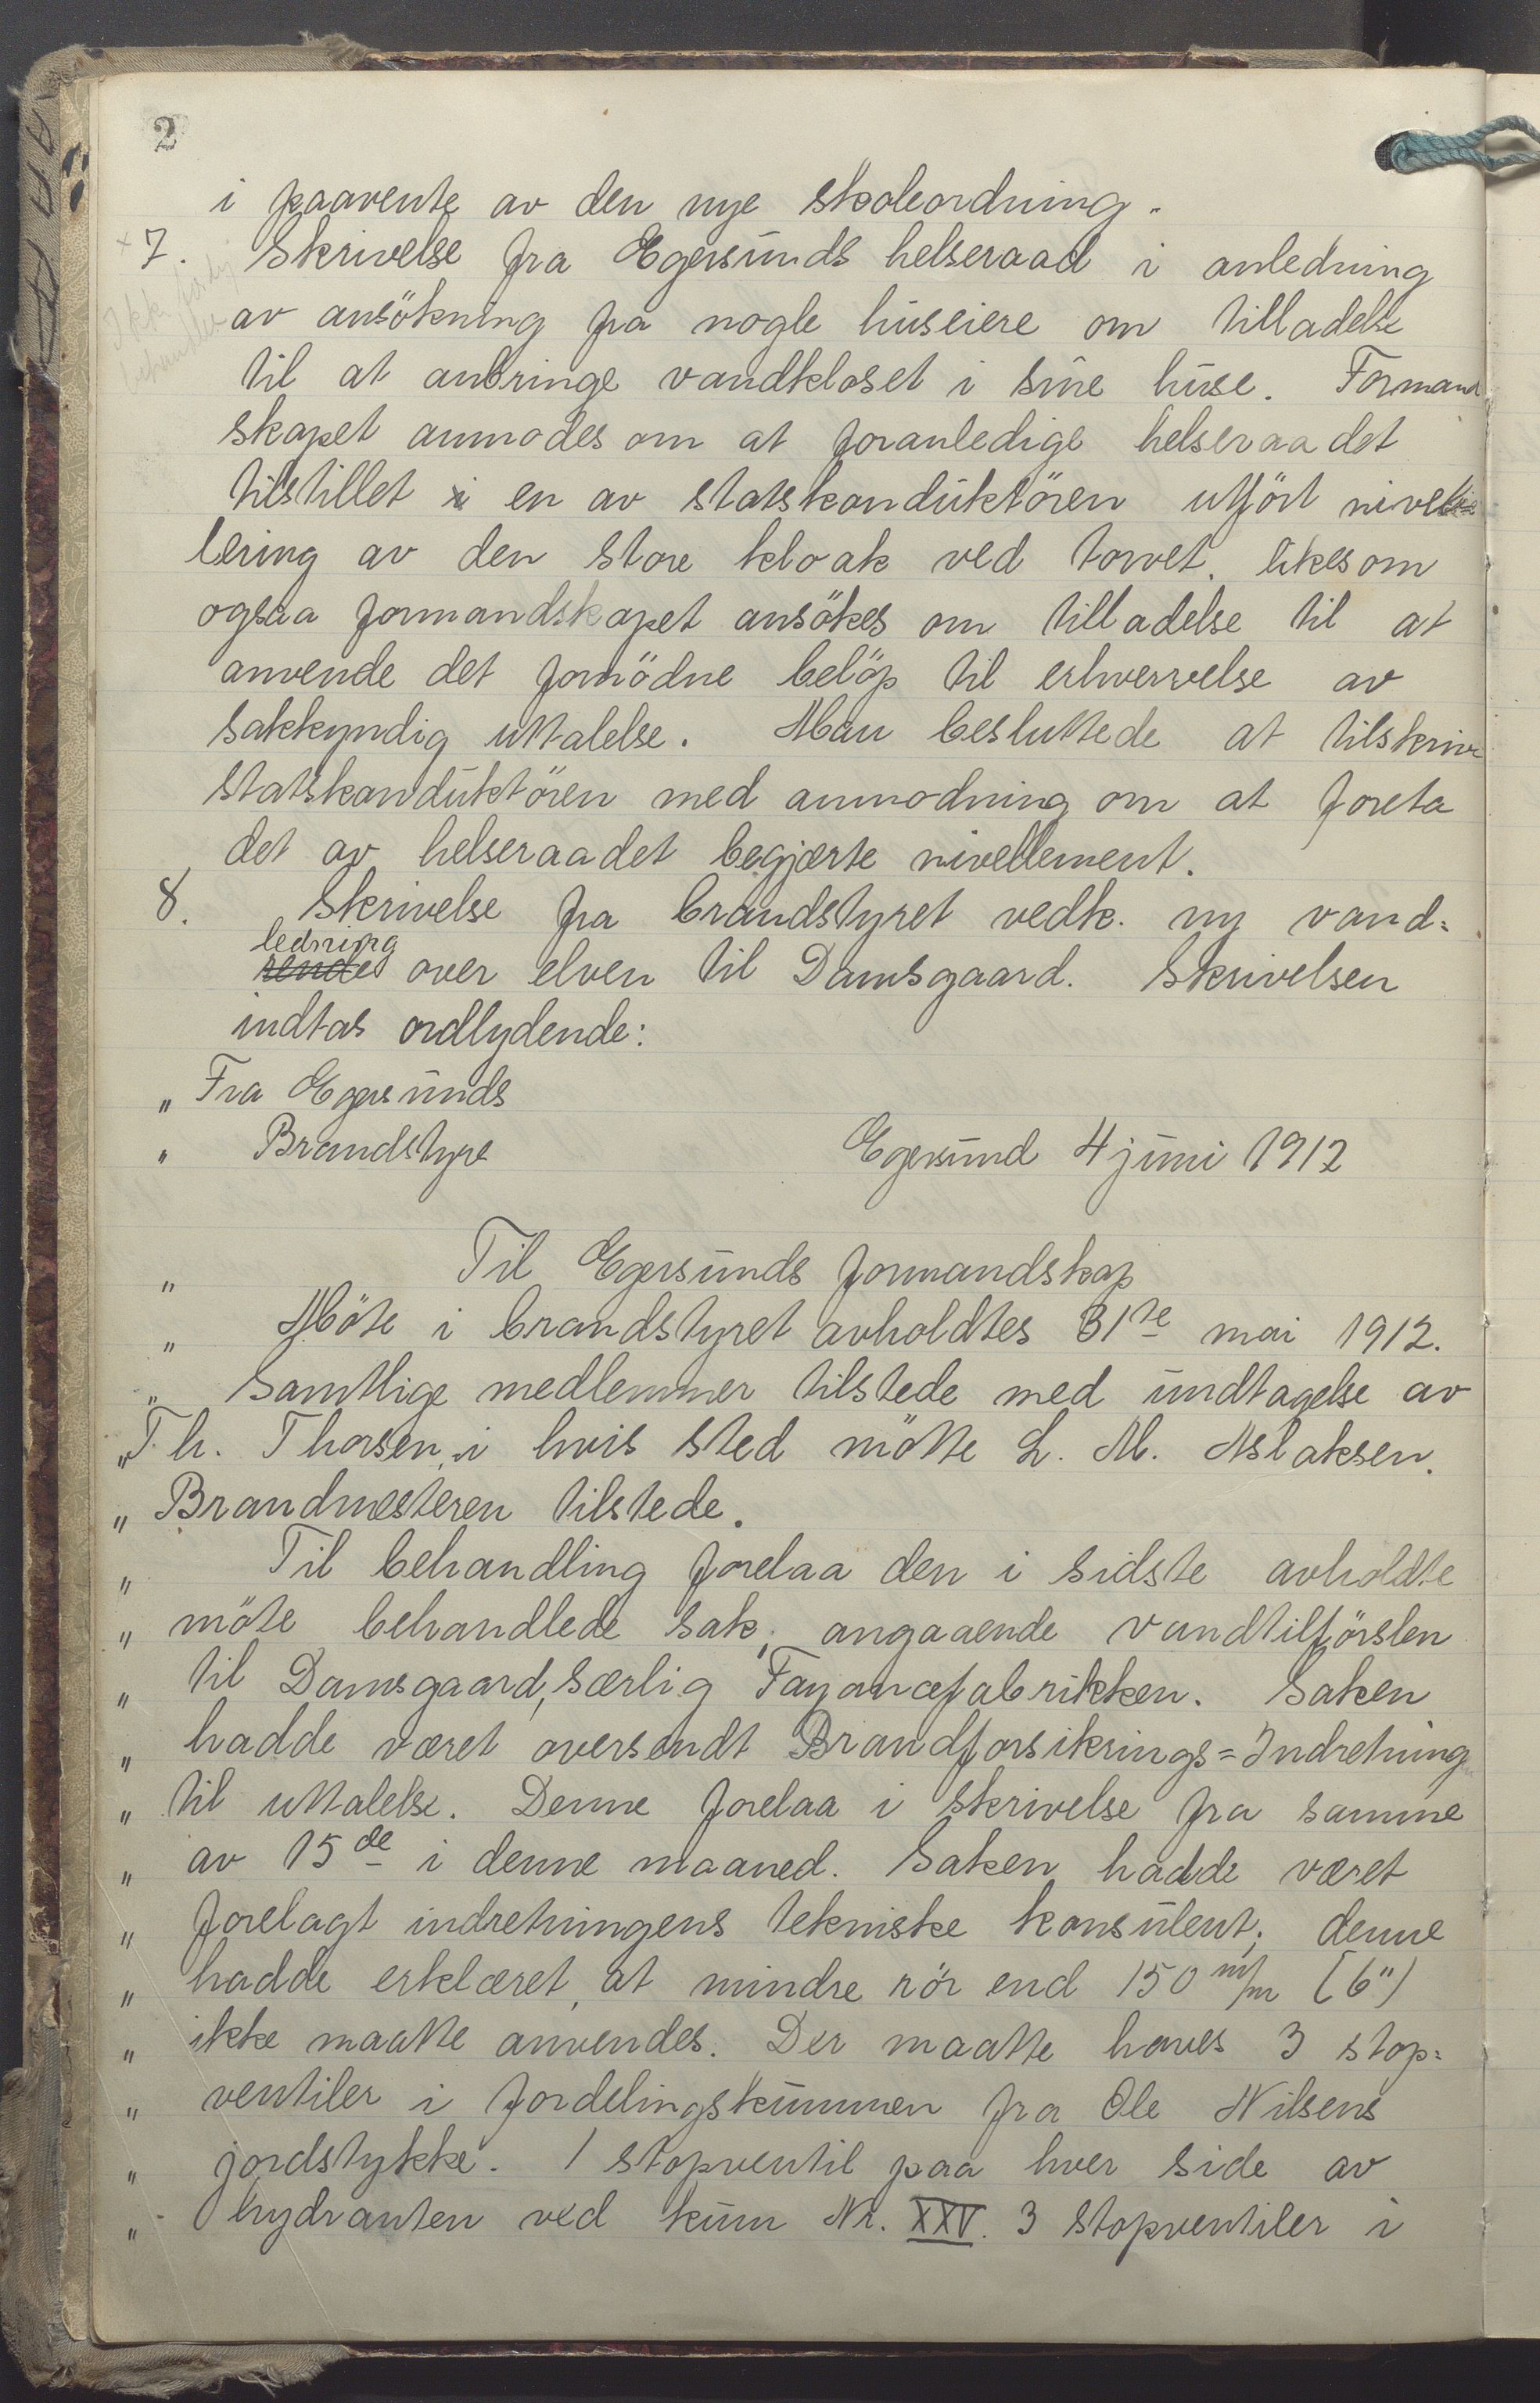 2
i paavente av den nye skoleordning.
7. Skrivelse fra Egersunds helseraad i anledning
av ansökning fra nogle huseiere om tilladelse
til at anbringe vandkloset i sine huse. Formand
skapet anmodes om at foranledige helseraadet
tilstillet en av statskonduktören utfört nivel
lering av den store kloak ved torvet, likesom
ogsaa formandskapet ansökes om tilladelse til at
anvende det fornödne belöp til erhvervelse av
sakkyndig uttalelse. Man besluttede at tilskrive
statskonduktören med anmodning om at foreta
det av helseraadet begjærte nivellement.
8. Skrivelse fra brandstyret vedk. ny vand=
ledning
rendes over elven til Damsgaard. Skrivelsen
indtas ordlydende:
" Fra Egersunds
" Brandstyre Egersund 4 juni 1912
" Til Egersunds formandskap
" Möte i brandstyret avholdtes 31te mai 1912.
" Samtlige medlemmer tilstede med undtagelse av
" Th. Thorsen, i hvis sted mötte L. M. Aslaksen.
" Brandmesteren tilstede.
" Til behandling forelaa den i sidste avholdte
" möte behandlede sak, angaaende vandtilförslen
" til Damsgaard, særlig Fayancefabrikken. Saken
" hadde været oversendt Brandforsikrings=Indretning
" til uttalelse. Denne forelaa i skrivelse fra samme
" av 15de i denne maaned. Saken hadde været
" forelagt indretningens tekniske konsulent; denne
" hadde erklæret, at mindre rör end 150 m/m (6")
" ikke maatte anvendes. Der maatte haves 3 stop=
" ventiler i fordelingskummen fra Ole Nilsens
" jordstykke. 1 stopventil paa hver side av
" hydranten ved kum Nr. XXV. 3 stopventiler i